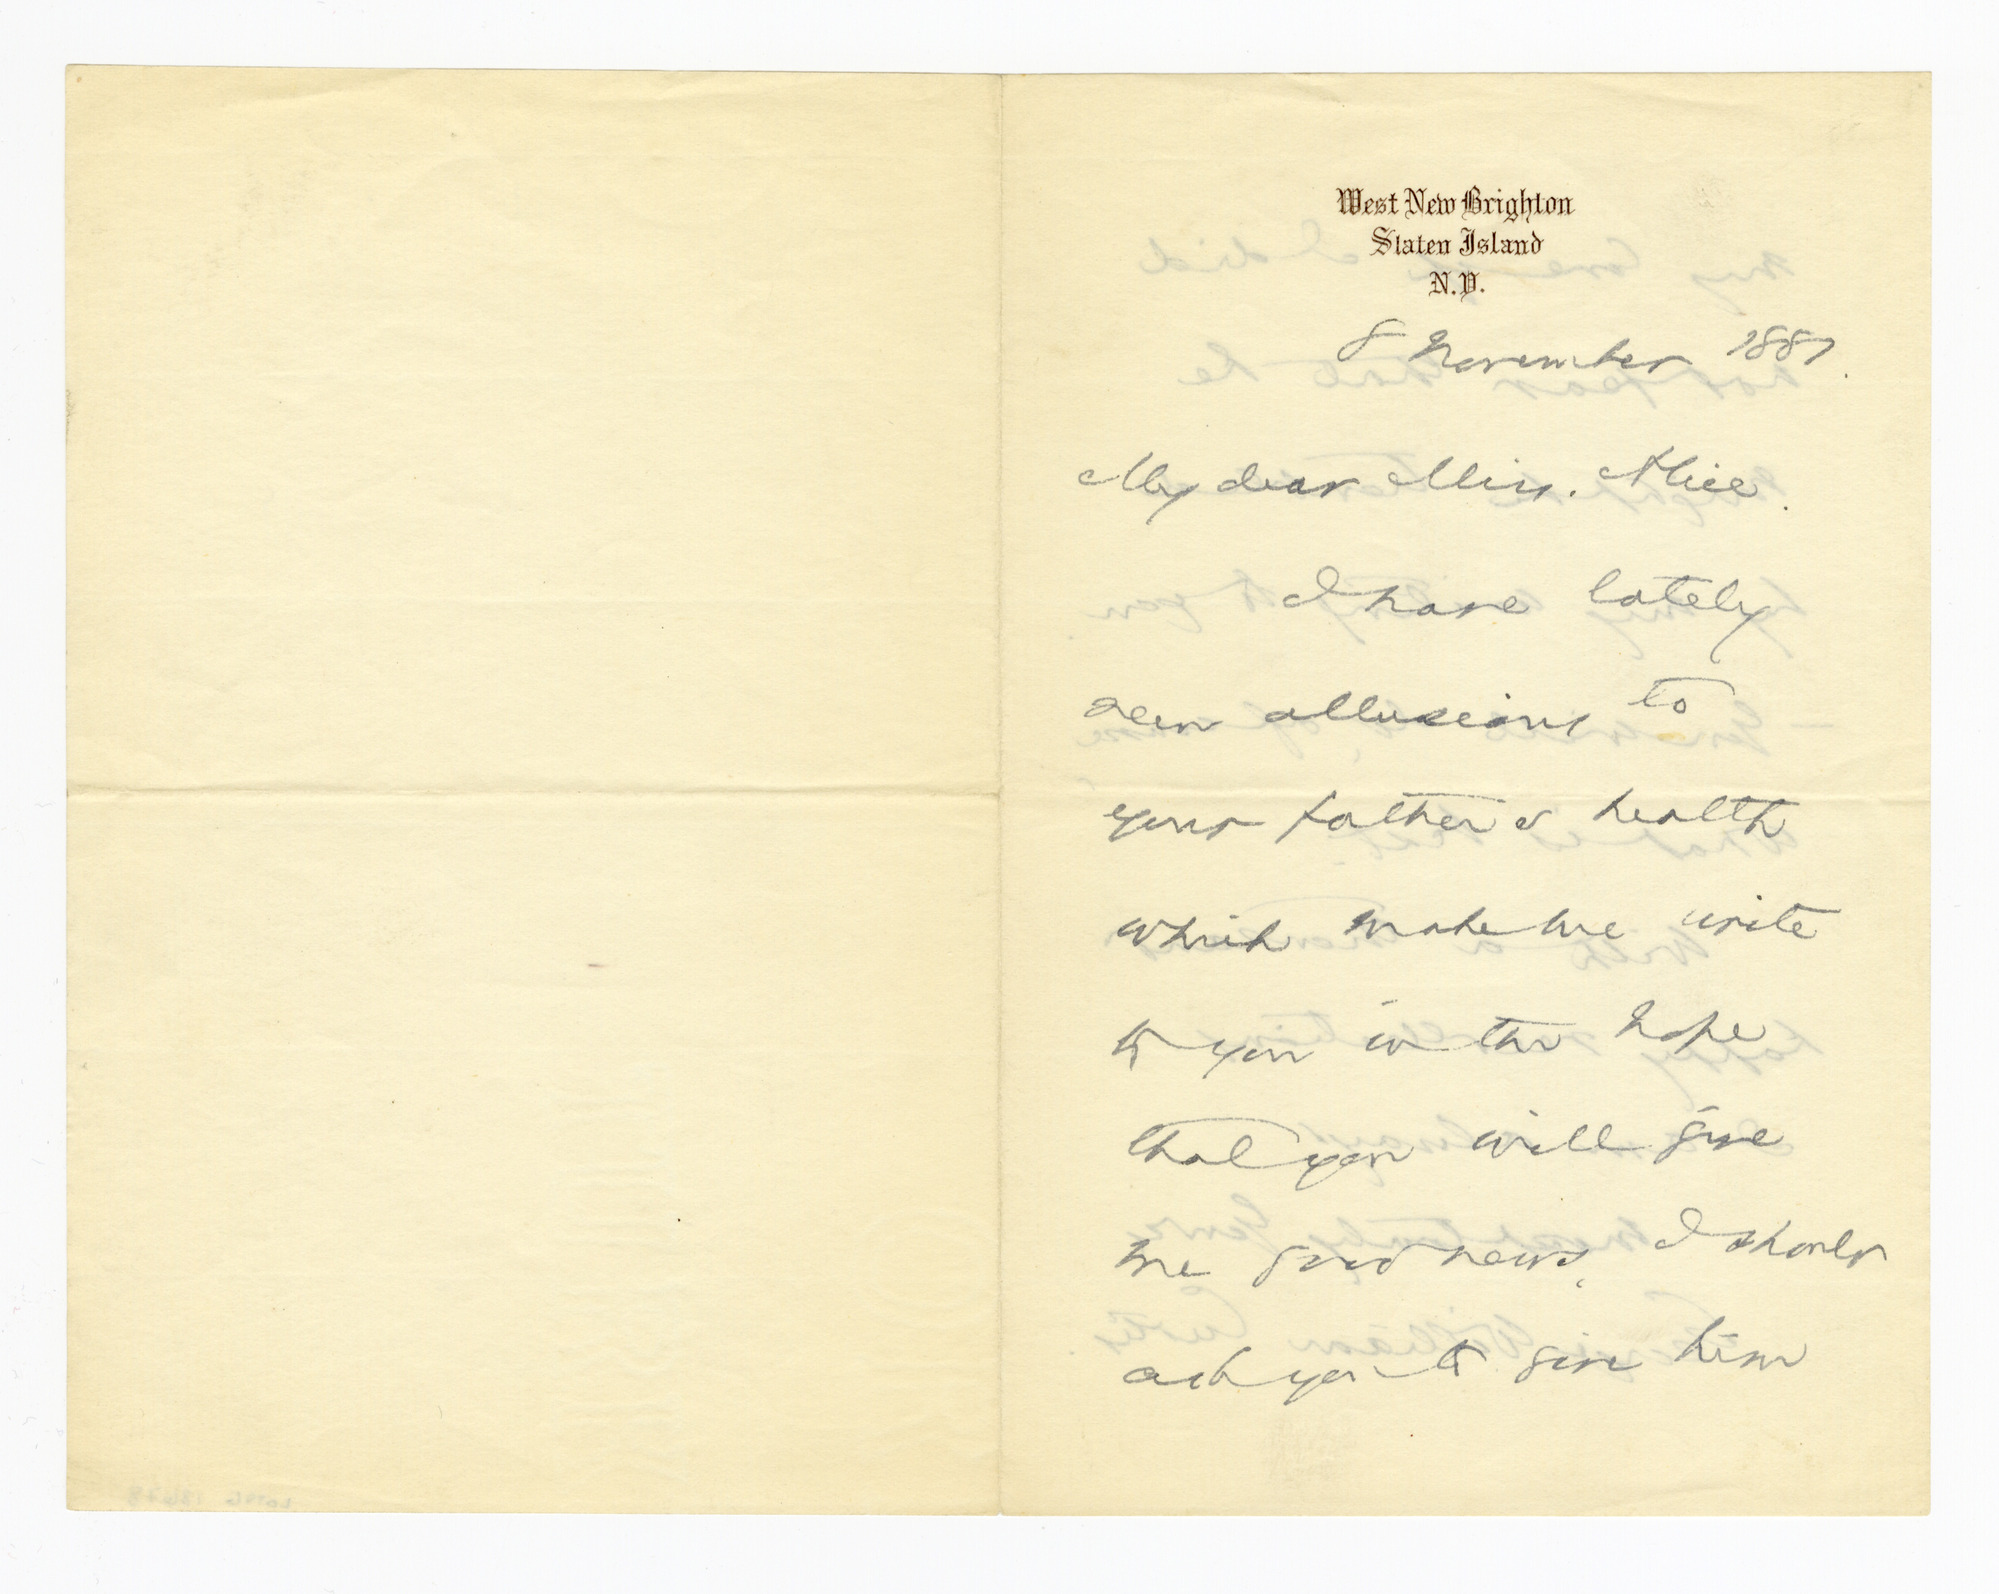 West New Brighton
Staten Island
N.Y.
8 November 1881.
My dear Miss. Alice.
I have lately
seen allusions to
your father's health
which make me write
to you in the hope
that you will give
me good news. I should
ask you to give him